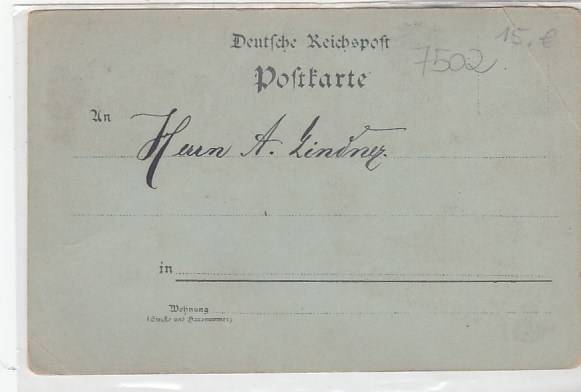 Deutsche Reichspost
15.€
7502
Postkarte
An
Herrn A. Lindner.
in
Wohnung
(Straße und Hausnummer)